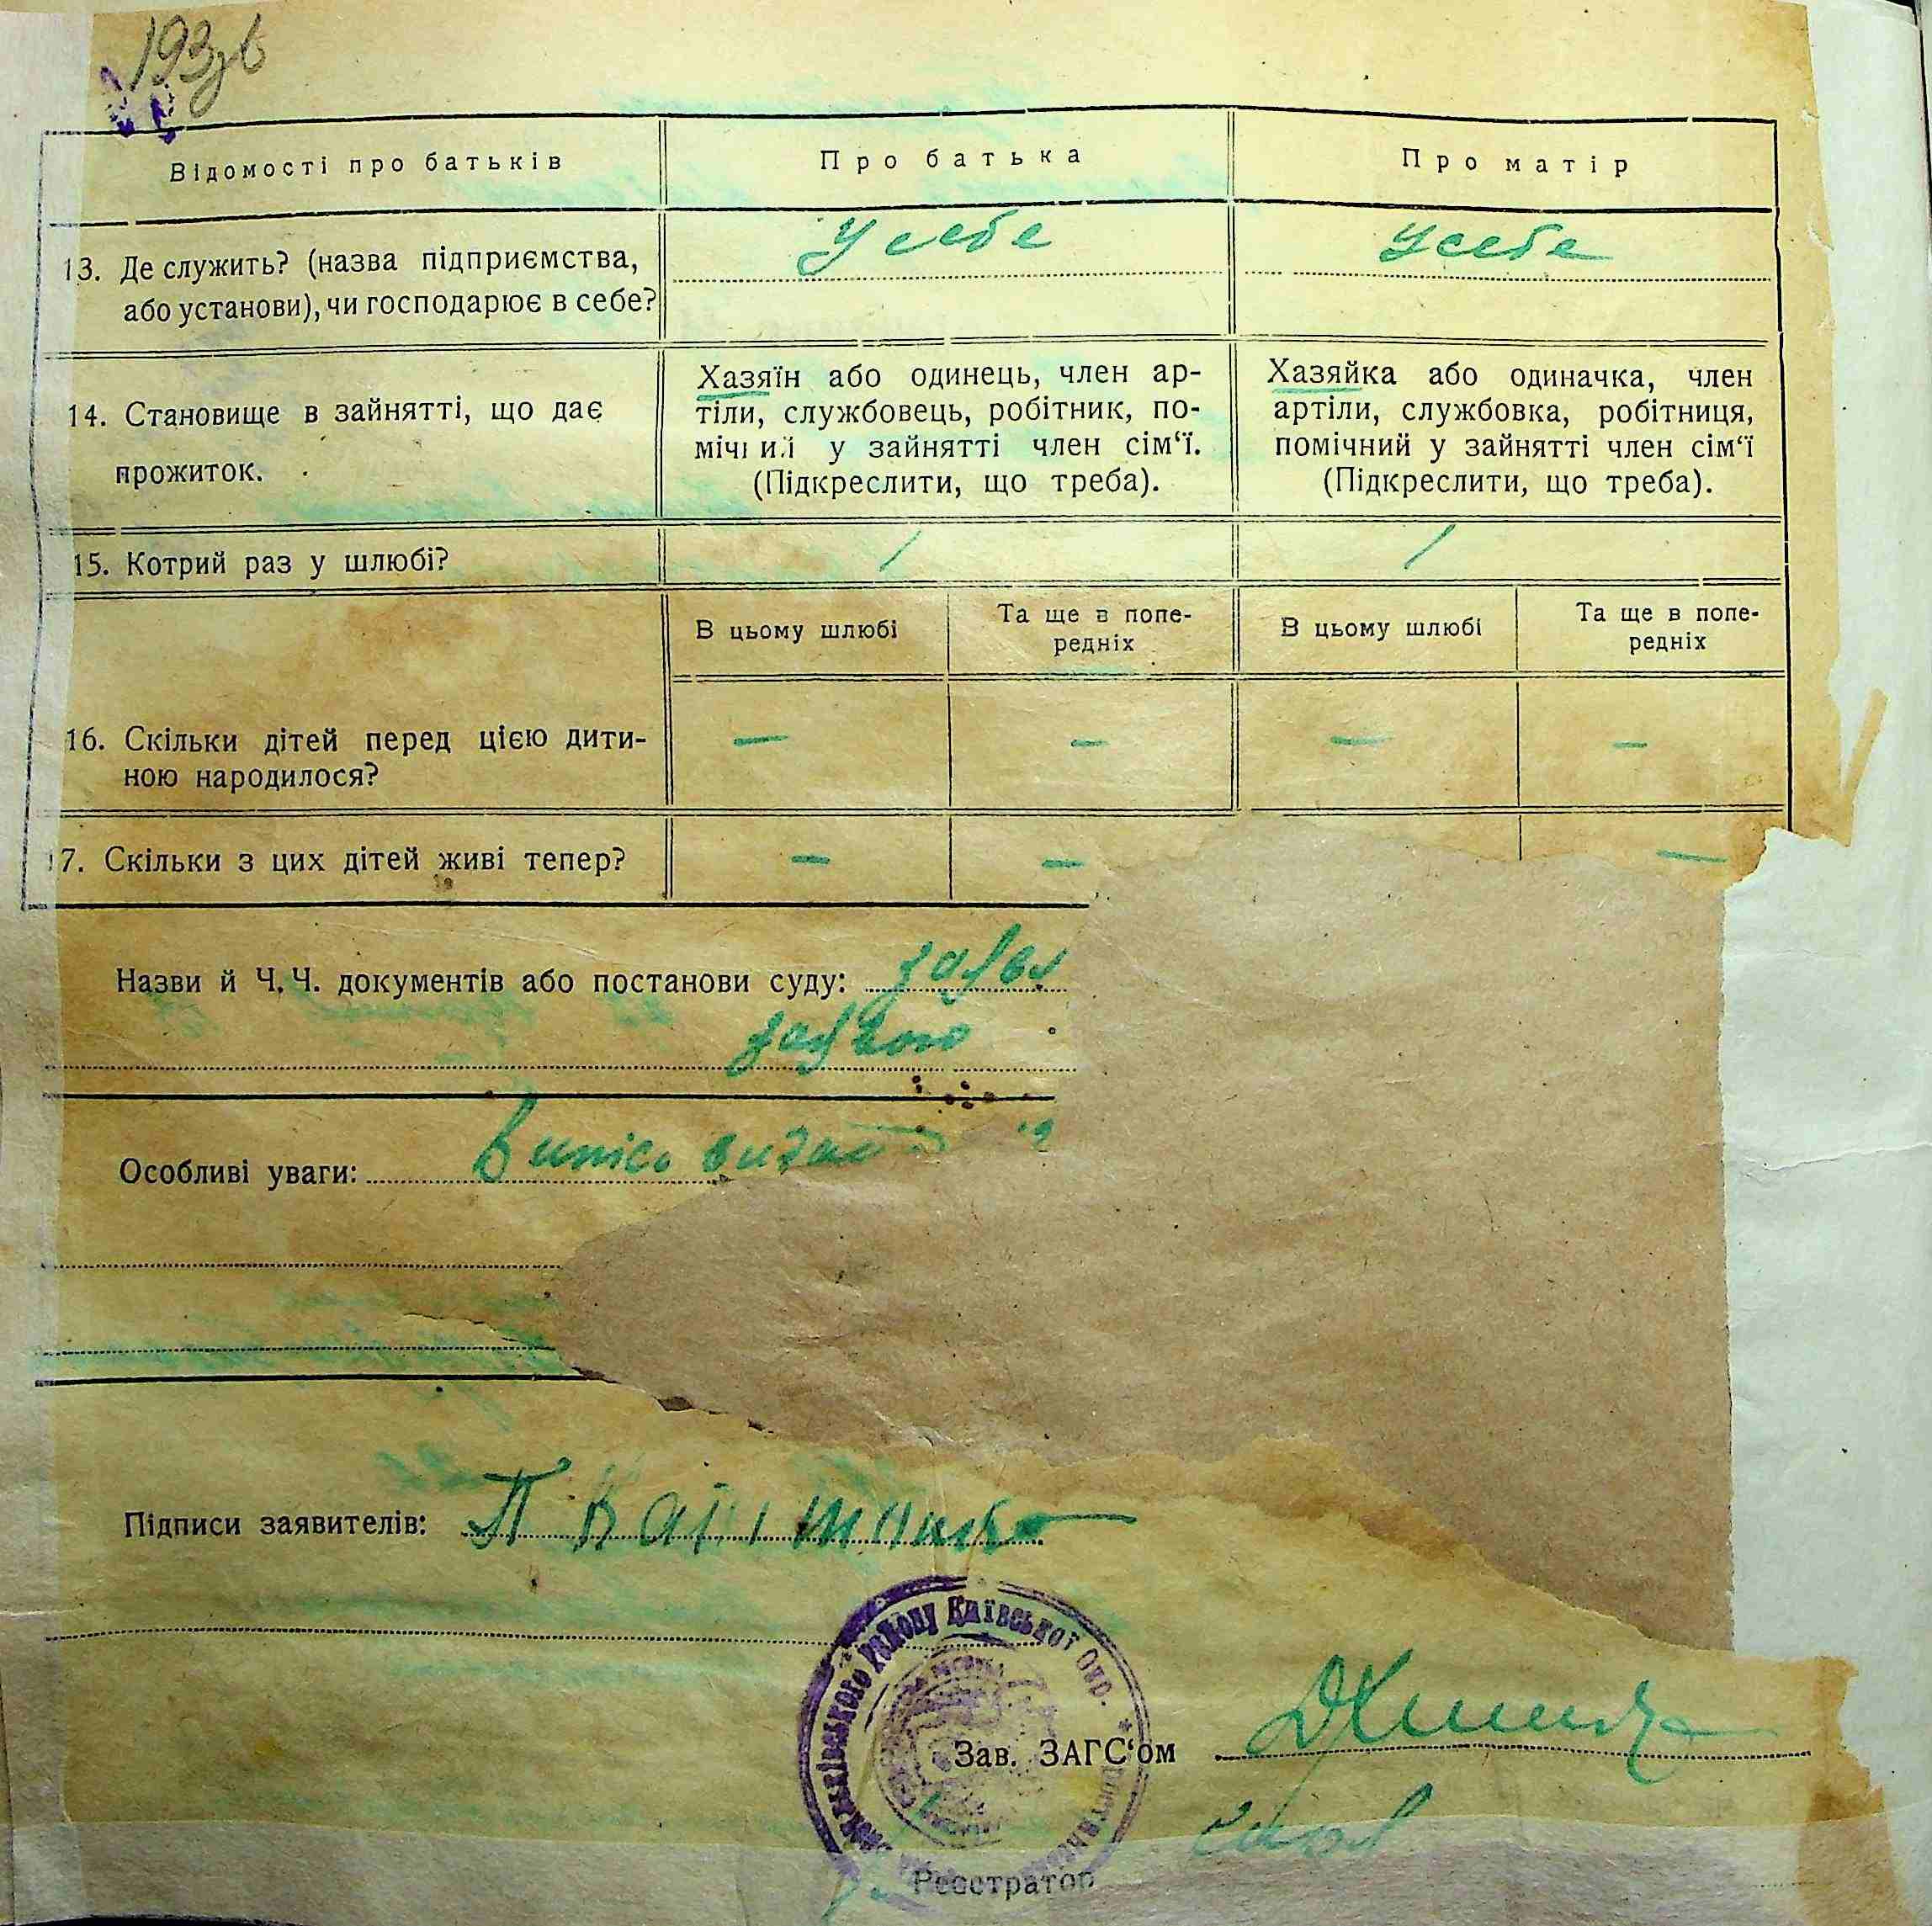 193зв
Відомості про батьків
Про батька
Про матір
13. Де служить? (назва підприємства,
або установи), чи господарює в себе?
У себе
У себе
14. Становище в зайнятті, що дає
прожиток.
Хазяїн або одинець, член ар-
тіли, службовець, робітник, по-
мічний у зайнятті член сім‘ї.
(Підкреслити, що треба).
Хазяйка або одиначка, член
артіли, службовка, робітниця,
помічний у зайнятті член сім‘ї
(Підкреслити, що треба).
15. Котрий раз у шлюбі?
1
1
В цьому шлюбі
Та ще в попе-
редніх
В цьому шлюбі
Та ще в попе-
редніх
16. Скільки дітей перед цією дити-
ною народилося?
— — — —
17. Скільки з цих дітей живі тепер?
— — —
Назви й Ч.Ч. документів або постанови суду:
Особливі уваги: Випись видан
Підписи заявителів: П
району Київської Окр.
Зав. ЗАГС‘ом
Реєстратор